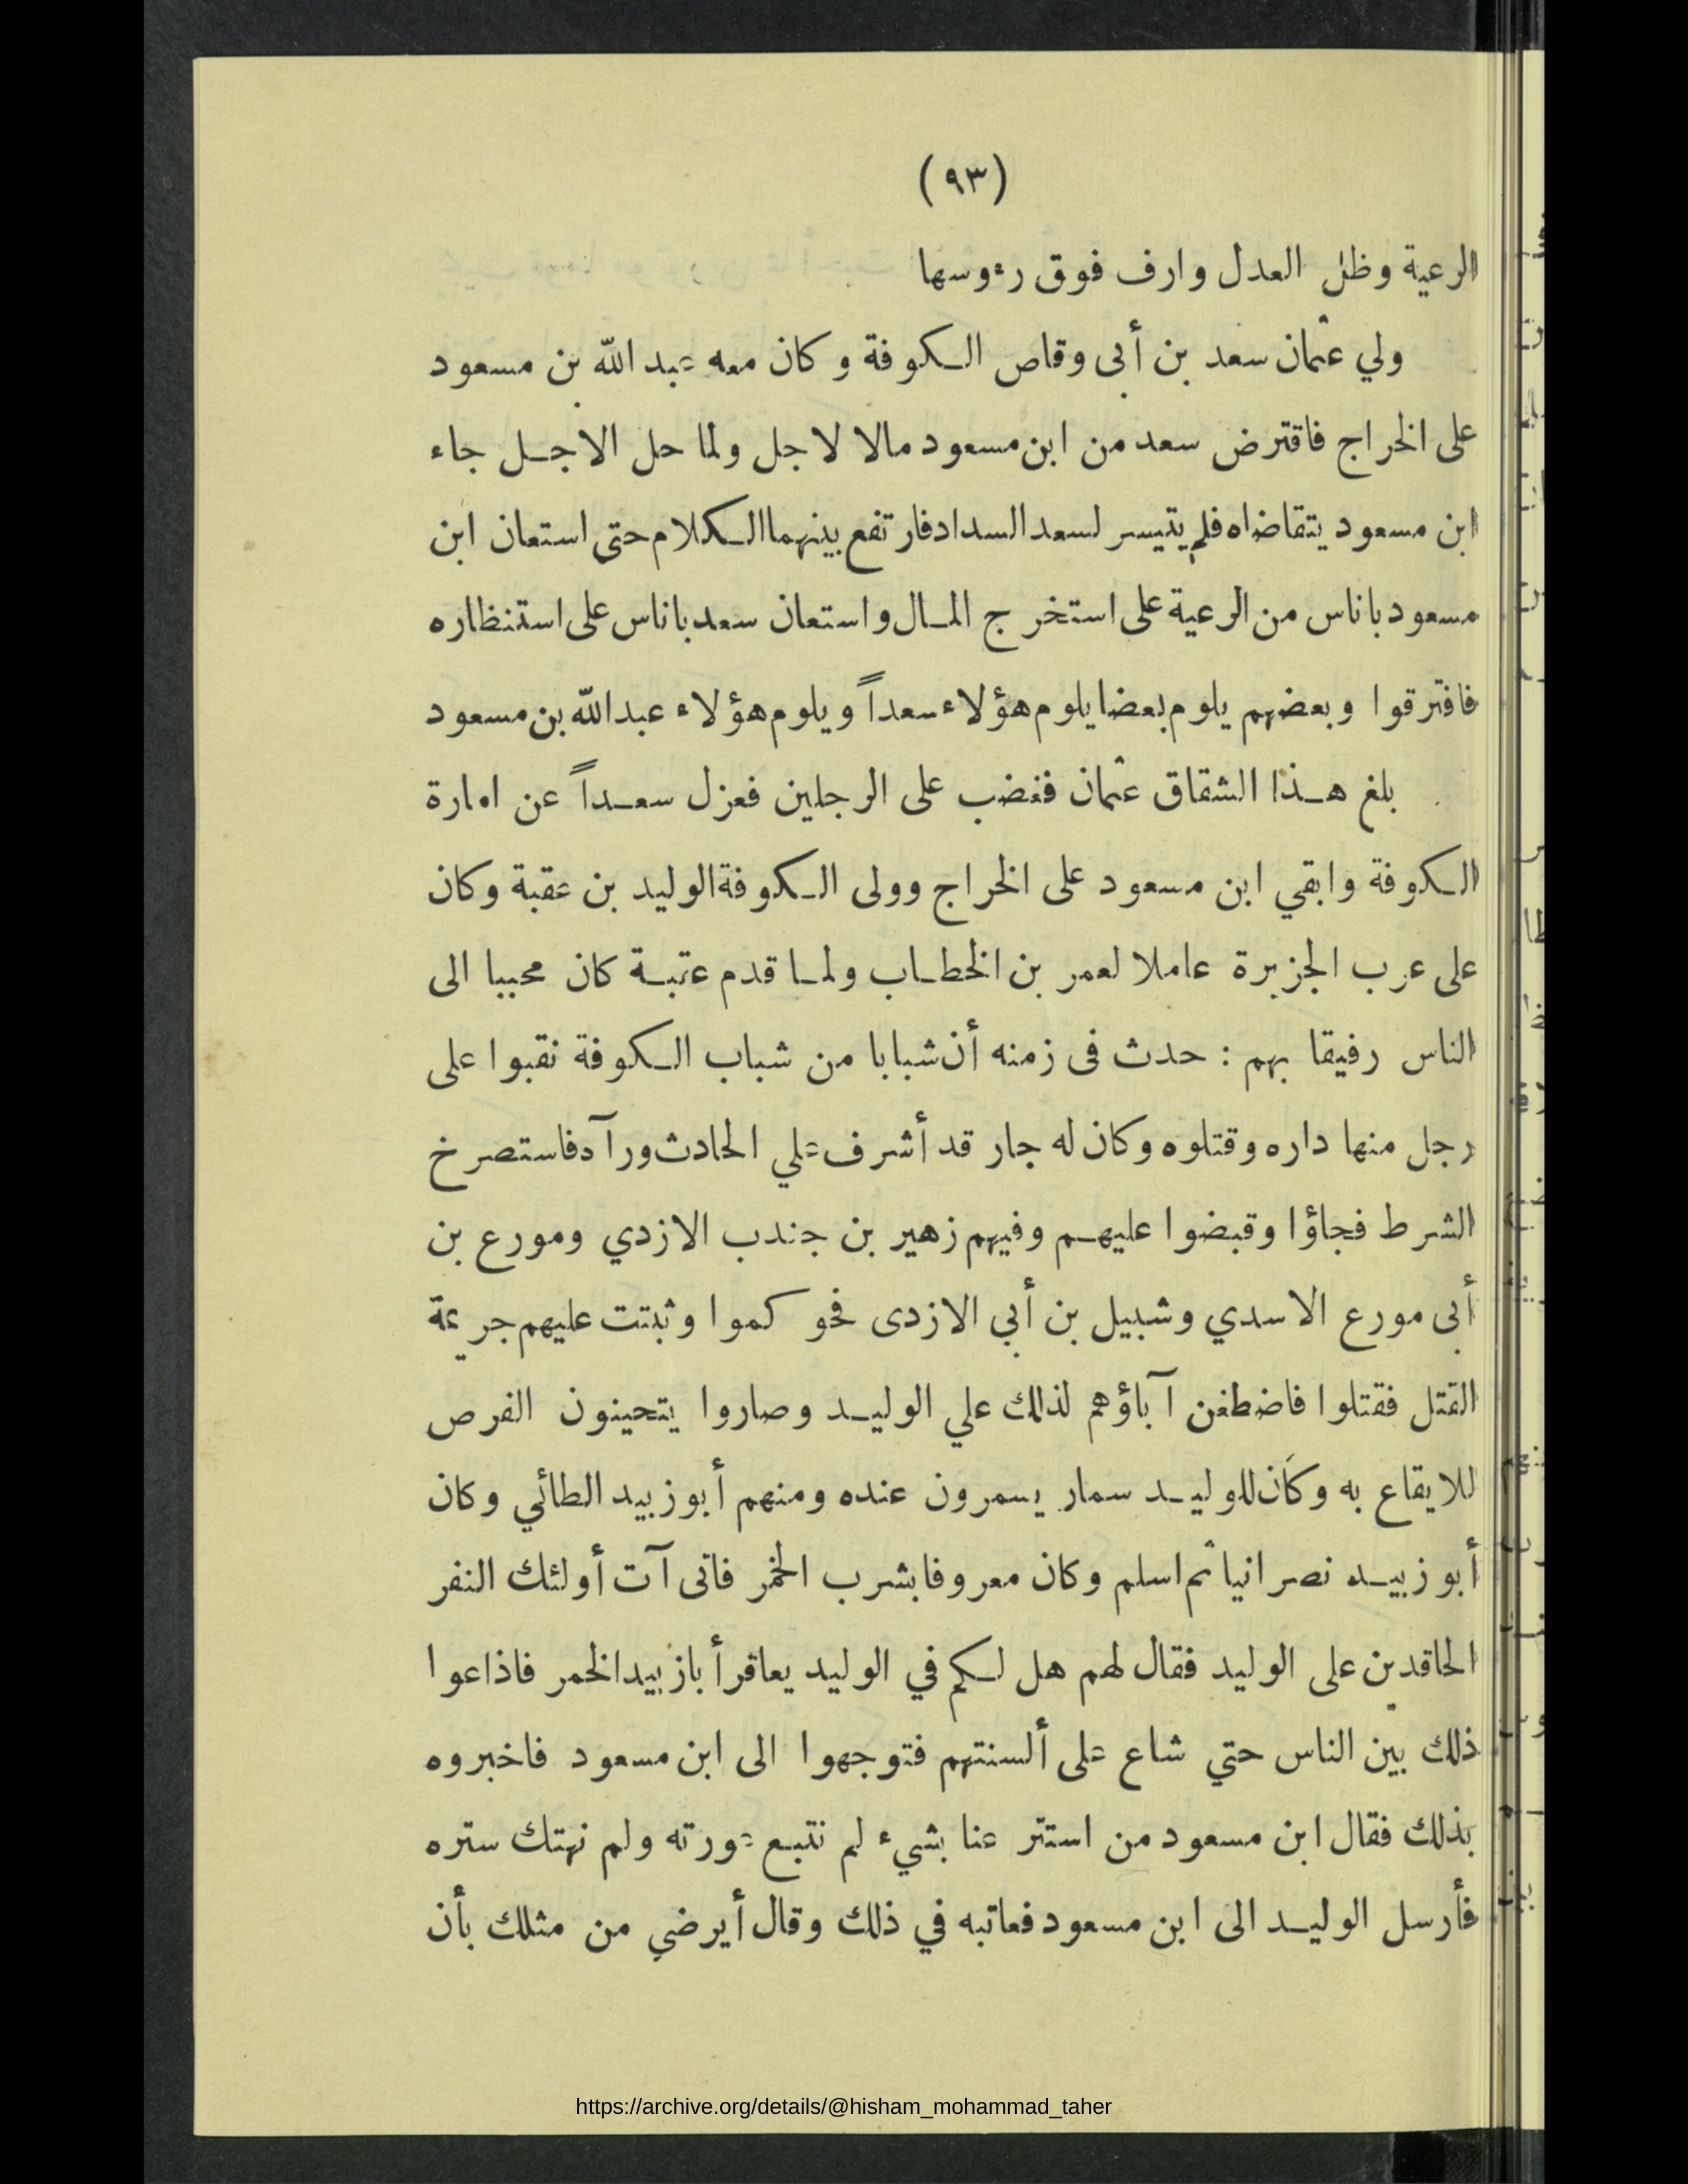 (٩٣)
الرعية وظل العدل وارف فوق رءوسها
ولي عثمان سعد بن أبى وقاص الكوفة وكان معه عبد الله بن مسعود
على الخراج فاقترض سعد من ابن مسعود مالا لاجل ولما حل الاجل جاء
ابن مسعود يتقاضاه فلم يتيسر لسعد السداد فارتفع بينهما الكلام حتى استعان ابن
مسعود باناس من الرعية على استخرج المال واستعان سعد باناس على استنظاره
فافترقوا وبعضهم يلوم بعضا يلوم هؤلاء سعداً ويلوم هؤلاء عبد الله بن مسعود
بلغ هذا الشقاق عثمان فغضب على الرجلين فعزل سعداً عن امارة
الكوفة وابقي ابن مسعود على الخراج وولى الكوفة الوليد بن عقبة وكان
على عرب الجزيرة عاملا لعمر بن الخطاب ولما قدم عتبة كان محببا الى
الناس رفيقا بهم : حدث فى زمنه أن شبابا من شباب الكوفة نقبوا على
رجل منها داره وقتلوه وكان له جار قد أشرف علي الحادث ورآه فاستصرخ
الشرط فجاؤا وقبضوا عليهم وفيهم زهير بن جندب الازدي ومورع بن
أبى مورع الاسدي وشبيل بن أبي الازدى فحوكموا وثبتت عليهم جريمة
القتل فقتلوا فاضطغن آباؤهم لذلك علي الوليد وصاروا يتحينون الفرص
للايقاع به وكان للوليد سمار يسمرون عنده ومنهم أبو زبيد الطائي وكان
أبو زبيد نصرانيا ثم اسلم وكان معروفا بشرب الخمر فاتى آت أولئك النفر
الحاقدين على الوليد فقال لهم هل لكم في الوليد يعاقر أبا زبيد الخمر فاذاعوا
ذلك بين الناس حتي شاع على ألسنتهم فتوجهوا الى ابن مسعود فاخبروه
بذلك فقال ابن مسعود من استتر عنا بشيء لم نتبع عورته ولم نهتك ستره
فأرسل الوليد الى ابن مسعود فعاتبه في ذلك وقال أيرضي من مثلك بأن
https://archive.org/details/@hisham_mohammad_taher